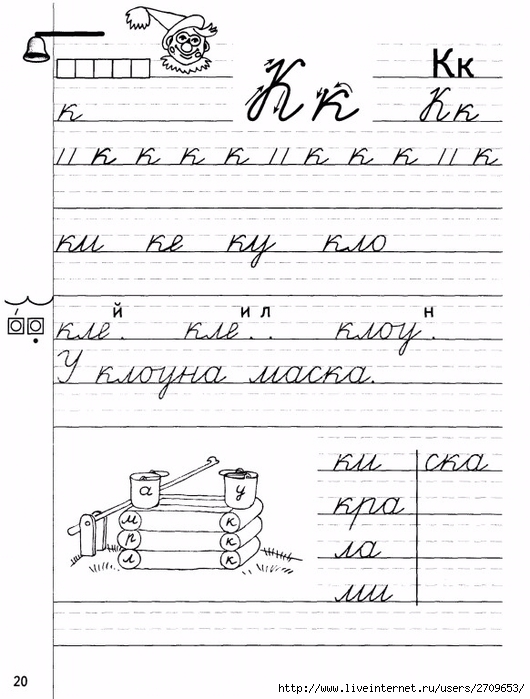 Кк
к Кк Кк
// к к к к // к к к // к
ки ке ку кло
й и л н
кле . кле . . клоу .
У клоуна маска.
ки ска
а у
кра
м к
р к
ла
л к
ми
20
http://www.liveinternet.ru/users/2709653/